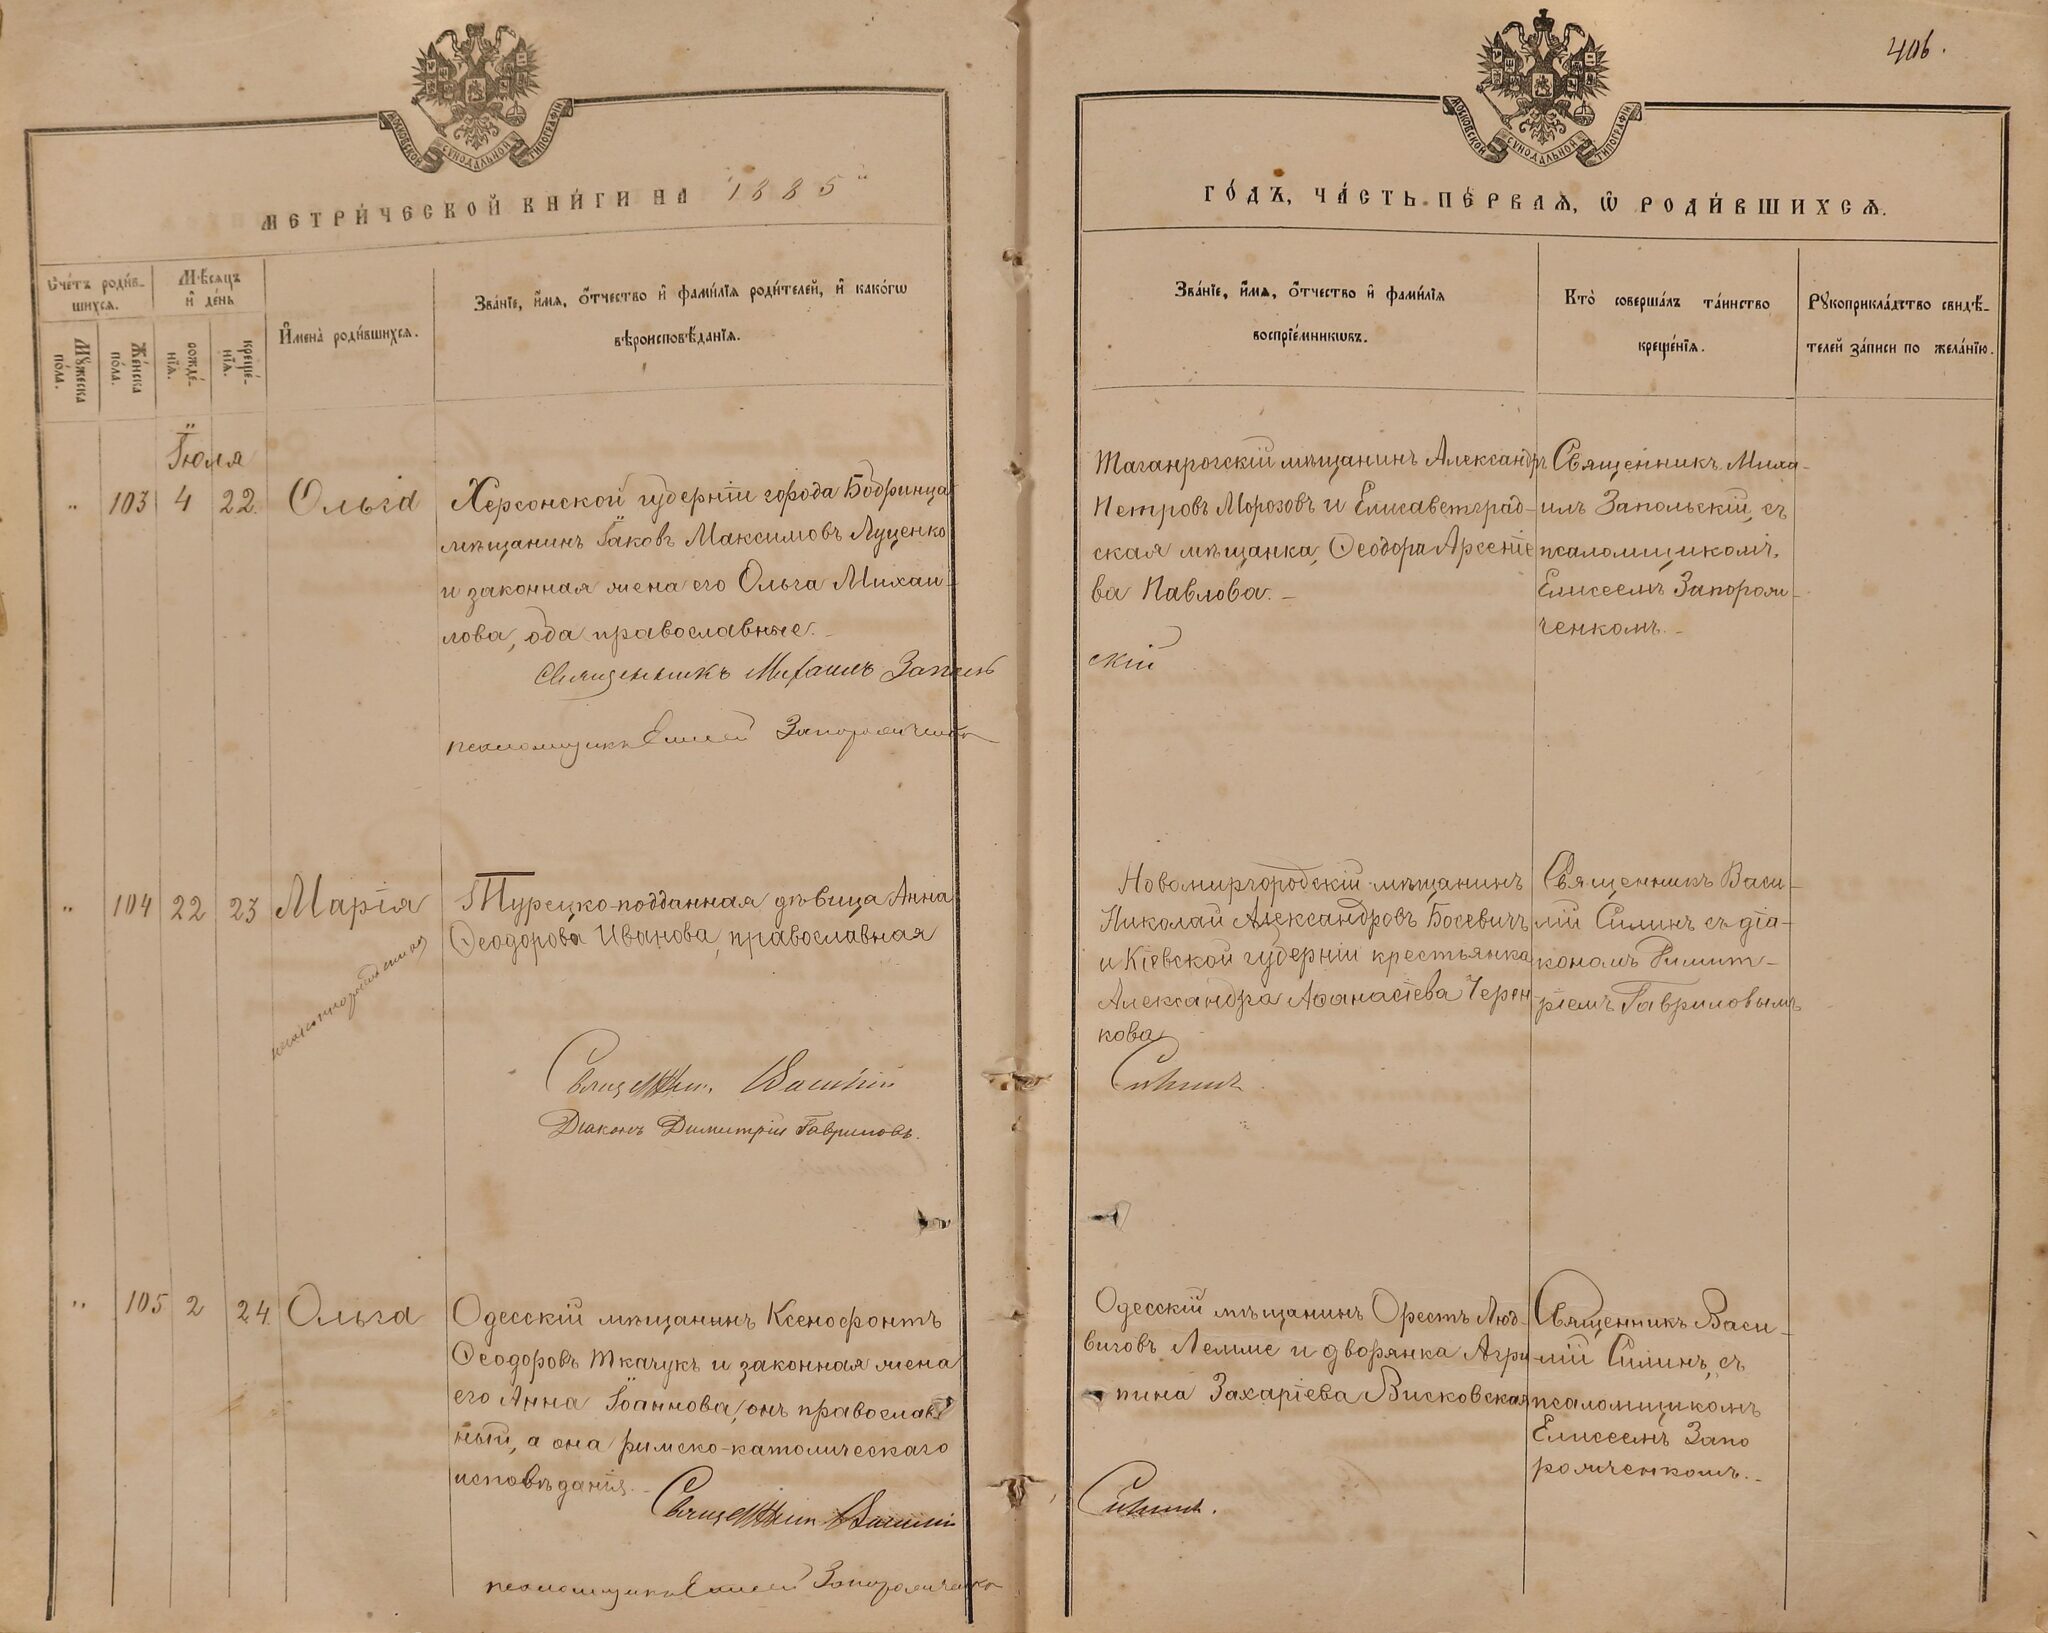 406.
МОСКОВСКОЙ СѴНОДАЛЬНОЙ ТИПОГРАФІИ
МОСКОВСКОЙ СѴНОДАЛЬНОЙ ТИПОГРАФІИ
МЕТРИ́ЧЕСКОЙ КНИ́ГИ НА 1885
ГО́ДЪ, ЧА́СТЬ ПЕ́РВАѦ, Ѡ РОДИ́ВШИХСѦ.
Сче́тъ роди́в-
шихсѧ.
Мꙋ́жеска
по́ла.
Же́нска
по́ла.
Мѣ́сѧцъ
и҆ де́нь
рожде́-
нїѧ.
креще́-
нїѧ.
И҆мена̀ роди́вшихсѧ.
Зва́нїе, и҆́мѧ, ѻ҆́тчество и҆ фами́лїѧ роди́телей, и҆ како́гѡ
вѣроисповѣ́данїѧ.
Зва́нїе, и҆́мѧ, ѻ҆́тчество и҆ фами́лїѧ
воспрїе́мникѡвъ.
Кто̀ соверша́лъ та́инство
креще́нїѧ.
Рꙋкоприкла́дство свидѣ́-
телей за́писи по жела́нїю.
Іюля
" 103 4 22. Ольга
Херсонской губерніи города Бобринца
мѣщанинъ Іаковъ Максимовъ Луценко
и законная жена его Ольга Михаи-
лова, оба православные.
Священникъ Михаилъ Заполь
скій
псаломщикъ Елисей Запорожченко
Таганрогскій мѣщанинъ Александръ
Петровъ Морозовъ и Елисаветград-
ская мѣщанка, Ѳеодора Арсеніе
ва Павлова.
Священникъ Миха-
илъ Запольскій, съ
псаломщикомъ
Елисеемъ Запорож-
ченкомъ.
" 104 22 23 Марія
незаконнорожденная
Турецко-подданная дѣвица Анна
Ѳеодорова Иванова, православная
Священник Василій
Силинъ
Діаконъ Димитрій Гавриловъ.
Новомиргородскій мѣщанинъ
Николай Александровъ Босевичъ
и Кіевской губерніи крестьянка
Александра Аѳанасіева Черен
кова
Священникъ Васи-
лій Силинъ съ діа-
кономъ Димит-
ріемъ Гавриловымъ
" 105 2 24. Ольга
Одесскій мѣщанинъ Ксенофонтъ
Ѳеодоровъ Ткачукъ и законная жена
его Анна Іоаннова, онъ православ
ный, а она римско-католическаго
исповѣданія.
Священник Василій
Силинъ.
псаломщикъ Елисей Запорожченко
Одесскій мѣщанинъ Орестъ Люд-
виговъ Лемме и дворянка Агри
пина Захаріева Висковская
Священникъ Васи-
лій Силинъ, съ
псаломщикомъ
Елисеемъ Запо
рожченкомъ.